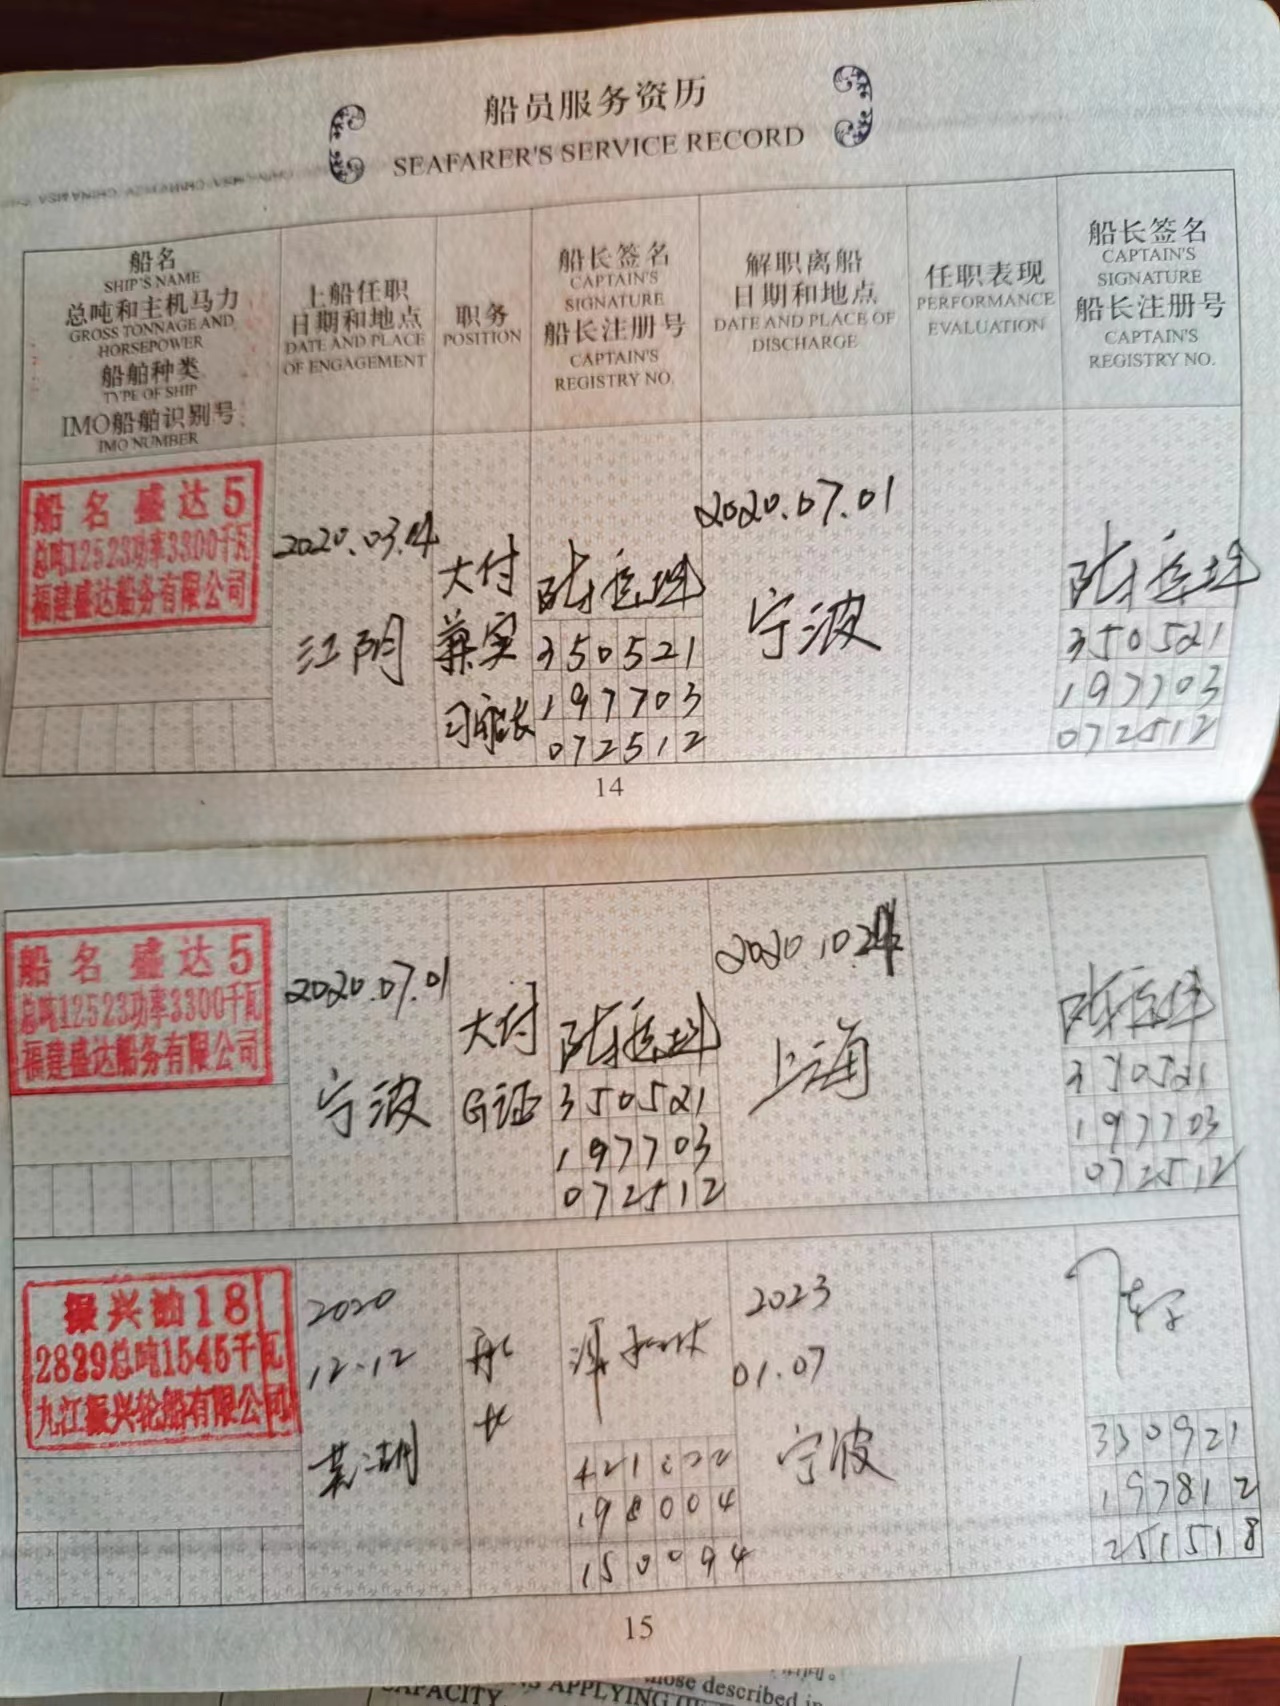 船员服务资历
SEAFARER'S SERVICE RECORD
船名
SHIP'S NAME
总吨和主机马力
GROSS TONNAGE AND
HORSEPOWER
船舶种类
TYPE OF SHIP
IMO船舶识别号
IMO NUMBER
上船任职
日期和地点
DATE AND PLACE
OF ENGAGEMENT
职务
POSITION
船长签名
CAPTAIN'S
SIGNATURE
船长注册号
CAPTAIN'S
REGISTRY NO.
解职离船
日期和地点
DATE AND PLACE OF
DISCHARGE
任职表现
PERFORMANCE
EVALUATION
船长签名
CAPTAIN'S
SIGNATURE
船长注册号
CAPTAIN'S
REGISTRY NO.
船名盛达5
总吨12523功率3300千瓦
福建盛达船务有限公司
2020.03.
江阴
大付
兼实
习船长
350521
197703
072512
2020.07.01
宁波
350521
197703
072512
14
船名盛达5
总吨12523功率3300千瓦
福建盛达船务有限公司
2020.07.01
宁波
大付
G证
350521
197703
072512
2020.10.24
上海
350521
197703
072512
振兴油18
2829总吨1545千瓦
九江振兴轮船有限公司
2020
12.12
船
长
198004
150094
2023
01.07
宁波
330921
197812
251518
15
those described in
CAPACITY
APPLYING